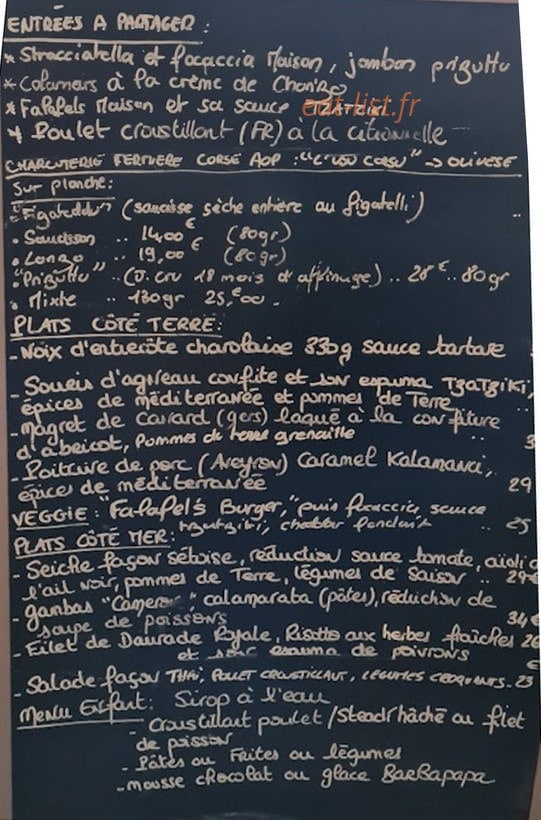 ENTRÉES A PARTAGER :
* Stracciatella et focaccia Maison, jambon prizuttu
* Calamars à la crème de Chorizo
* Falafels Maison et sa sauce TZATZIKI
edt-list.fr
* Poulet croustillant (FR) à la citronnelle
CHARCUTERIE FERMIERE CORSE AOP : "L'USU CORSU" → OLIVESE
Sur planche :
"Figateddu" (saucisse sèche entière au figatelli)
• Saucisson .. 14,00 € (80gr)
• Lonzo .. 19,00 € (80gr)
• "Prizuttu" .. (J. cru 18 mois d'affinage) .. 28 € .. 80gr
• Mixte .. 180gr 25,€00 .
PLATS CÔTÉ TERRE :
- Noix d'entrecôte charolaise 330g sauce tartare
- Souris d'agneau confite et son espuma TZATZIKI,
épices de méditerranée et pommes de Terre
- Magret de Canard (gers) laqué à la confiture
d'abricot, pommes de terre grenaille .. 3
- Poitrine de porc (Aveyron) Caramel Kalamansi,
épices de méditerranée 29
VEGGIE : "Falafel's Burger," puis focaccia, sauce
tzatziki, cheddar fondant .. 25
PLATS CÔTÉ MER :
- Seiche façon sétoise, réduction sauce tomate, aïoli à
l'ail noir, pommes de Terre, légumes de Saison .. 29€
- gambas "Cameron", calamarata (pâtes), réduction de
soupe de poissons 34€
- Filet de Daurade Royale, Risotto aux herbes fraîches 26
et son espuma de poivrons €
- Salade façon THAÏ, POULET CROUSTILLANT, LÉGUMES CROQUANTS - 23
MENU Enfant : Sirop à l'eau
- Croustillant poulet / Steack hâché ou filet
de poisson
- Pâtes ou Frites ou légumes
- mousse chocolat ou glace Barbapapa